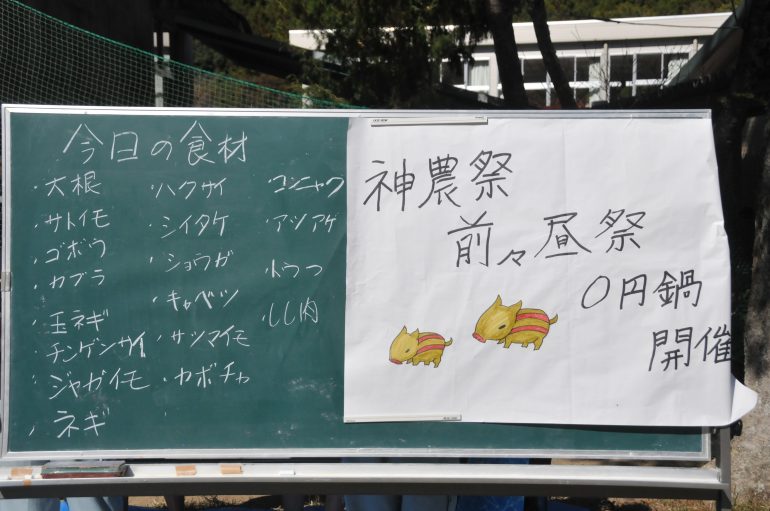 今日の食材
・大根
・サトイモ
・ゴボウ
・カブラ
・玉ネギ
・チンゲンサイ
・ジャガイモ
・ネギ
・ハクサイ
・シイタケ
・ショウガ
・キャベツ
・サツマイモ
・カボチャ
・コンニャク
・アツアゲ
・しし肉
神農祭
前々昼祭
0円鍋
開催